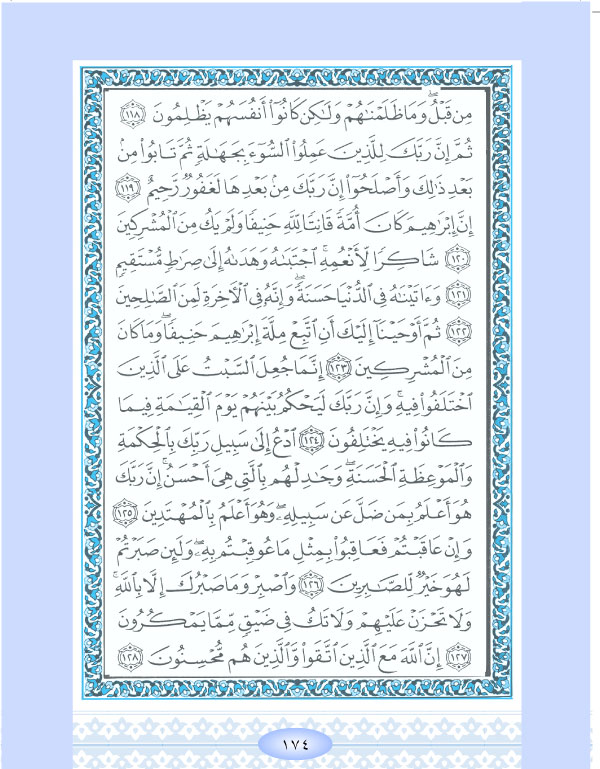 مِن قَبۡلُۖ وَمَا ظَلَمۡنَٰهُمۡ وَلَٰكِن كَانُوٓاْ أَنفُسَهُمۡ يَظۡلِمُونَ ١١٨
ثُمَّ إِنَّ رَبَّكَ لِلَّذِينَ عَمِلُواْ ٱلسُّوٓءَ بِجَهَٰلَةٖ ثُمَّ تَابُواْ مِنۢ
بَعۡدِ ذَٰلِكَ وَأَصۡلَحُوٓاْ إِنَّ رَبَّكَ مِنۢ بَعۡدِهَا لَغَفُورٞ رَّحِيمٌ ١١٩
إِنَّ إِبۡرَٰهِيمَ كَانَ أُمَّةٗ قَانِتٗا لِّلَّهِ حَنِيفٗا وَلَمۡ يَكُ مِنَ ٱلۡمُشۡرِكِينَ
١٢٠ شَاكِرٗا لِّأَنۡعُمِهِۚ ٱجۡتَبَىٰهُ وَهَدَىٰهُ إِلَىٰ صِرَٰطٖ مُّسۡتَقِيمٖ
١٢١ وَءَاتَيۡنَٰهُ فِي ٱلدُّنۡيَا حَسَنَةٗۖ وَإِنَّهُۥ فِي ٱلۡأٓخِرَةِ لَمِنَ ٱلصَّٰلِحِينَ
١٢٢ ثُمَّ أَوۡحَيۡنَآ إِلَيۡكَ أَنِ ٱتَّبِعۡ مِلَّةَ إِبۡرَٰهِيمَ حَنِيفٗاۖ وَمَا كَانَ
مِنَ ٱلۡمُشۡرِكِينَ ١٢٣ إِنَّمَا جُعِلَ ٱلسَّبۡتُ عَلَى ٱلَّذِينَ
ٱخۡتَلَفُواْ فِيهِۚ وَإِنَّ رَبَّكَ لَيَحۡكُمُ بَيۡنَهُمۡ يَوۡمَ ٱلۡقِيَٰمَةِ فِيمَا
كَانُواْ فِيهِ يَخۡتَلِفُونَ ١٢٤ ٱدۡعُ إِلَىٰ سَبِيلِ رَبِّكَ بِٱلۡحِكۡمَةِ
وَٱلۡمَوۡعِظَةِ ٱلۡحَسَنَةِۖ وَجَٰدِلۡهُم بِٱلَّتِي هِيَ أَحۡسَنُۚ إِنَّ رَبَّكَ
هُوَ أَعۡلَمُ بِمَن ضَلَّ عَن سَبِيلِهِۦ وَهُوَ أَعۡلَمُ بِٱلۡمُهۡتَدِينَ ١٢٥
وَإِنۡ عَاقَبۡتُمۡ فَعَاقِبُواْ بِمِثۡلِ مَا عُوقِبۡتُم بِهِۦۖ وَلَئِن صَبَرۡتُمۡ
لَهُوَ خَيۡرٞ لِّلصَّٰبِرِينَ ١٢٦ وَٱصۡبِرۡ وَمَا صَبۡرُكَ إِلَّا بِٱللَّهِۚ
وَلَا تَحۡزَنۡ عَلَيۡهِمۡ وَلَا تَكُ فِي ضَيۡقٖ مِّمَّا يَمۡكُرُونَ
١٢٧ إِنَّ ٱللَّهَ مَعَ ٱلَّذِينَ ٱتَّقَواْ وَّٱلَّذِينَ هُم مُّحۡسِنُونَ ١٢٨
١٧٤